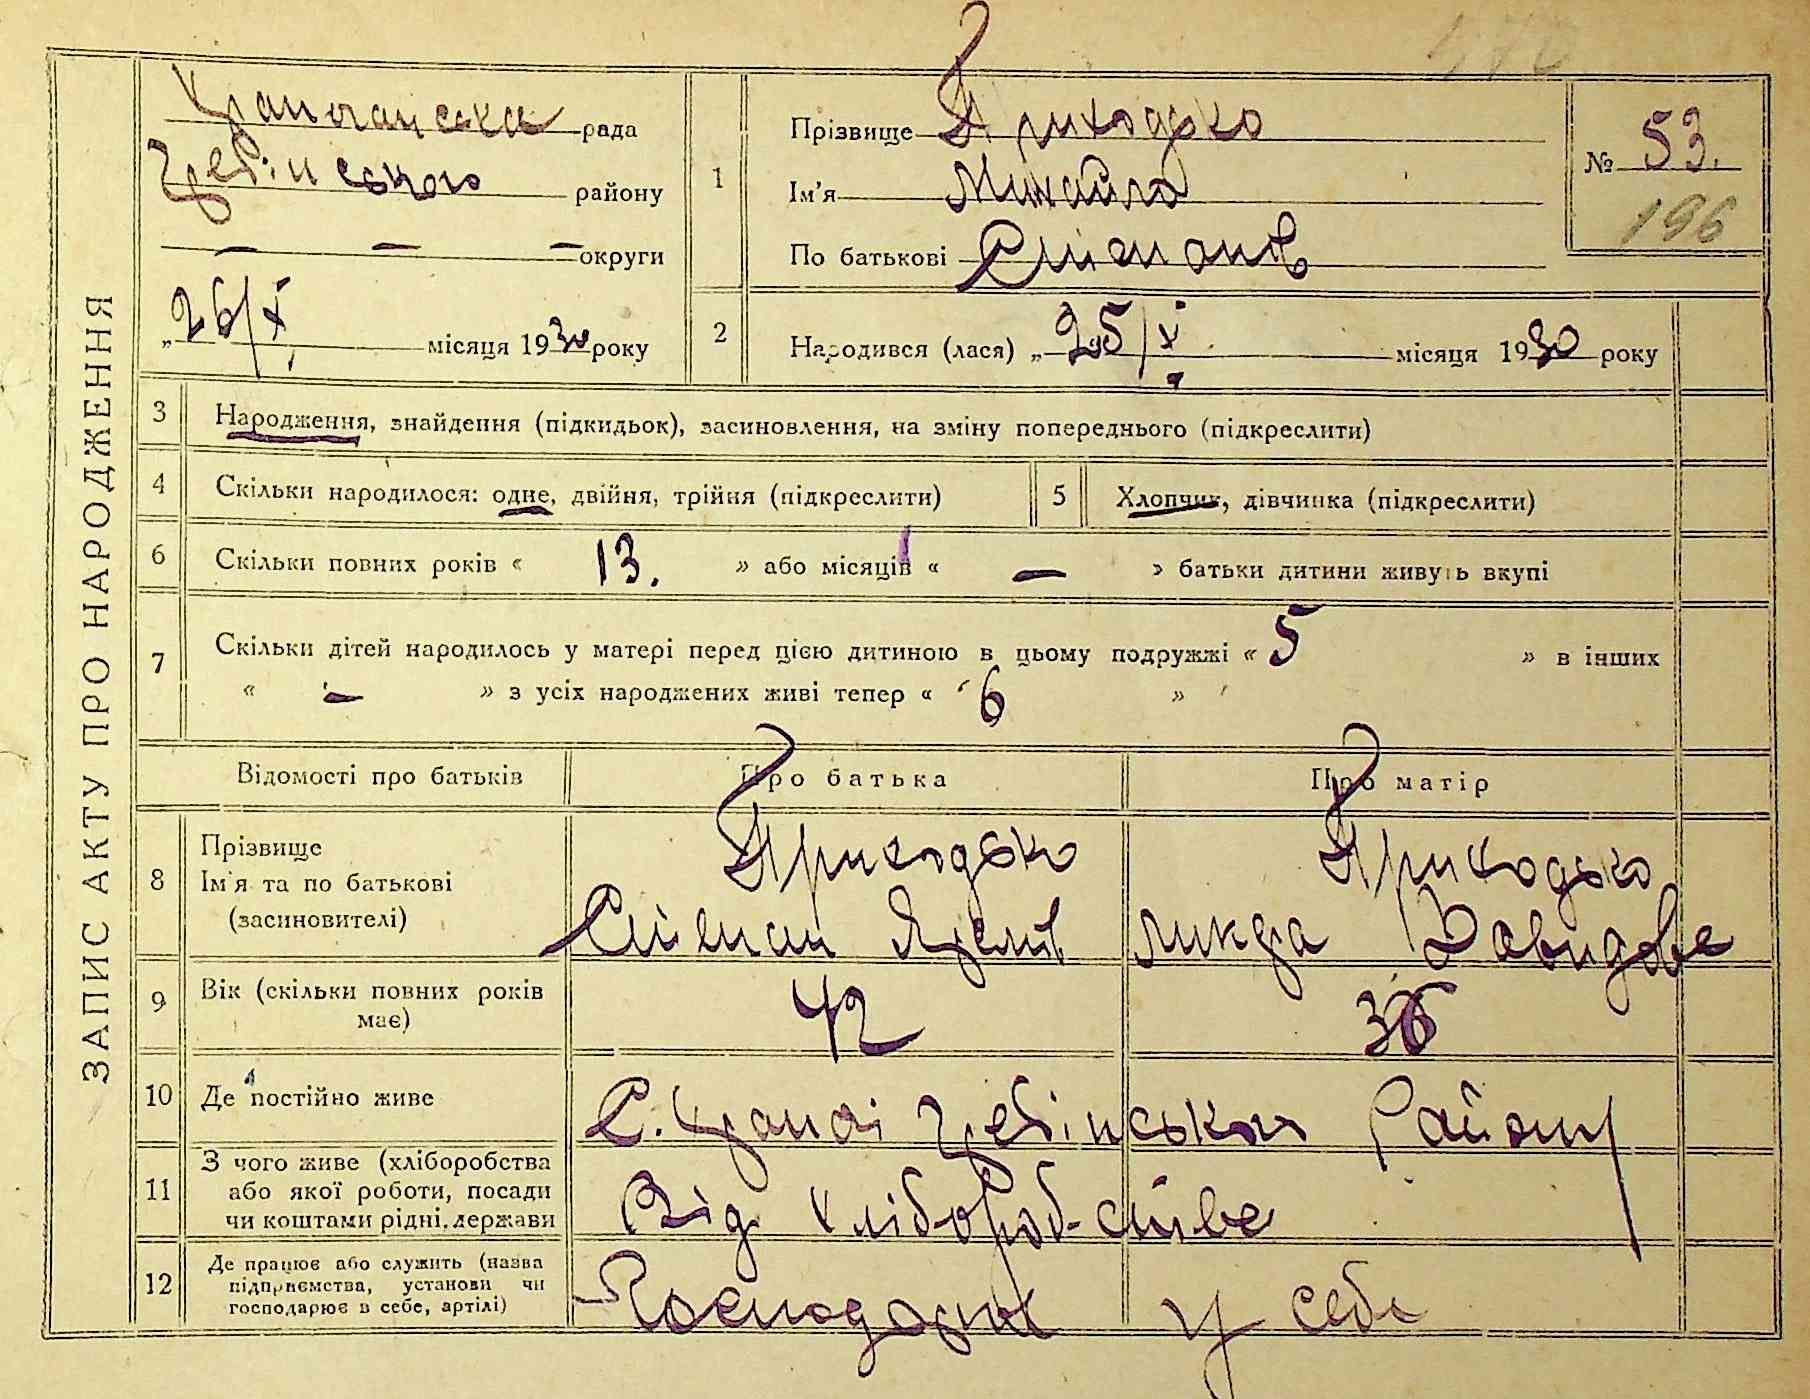 ЗАПИС АКТУ ПРО НАРОДЖЕННЯ
рада
Гребінського району
— — — округи
„ 26/X місяця 1930 року
1
Прізвище Приходько
Ім'я Михайло
По батькові Степанів
№ 53.
196
2
Народився (лася) „ 25/X місяця 1930 року
3 Народження, знайдення (підкидьок), засиновлення, на зміну попереднього (підкреслити)
4 Скільки народилося: одне, двійня, трійня (підкреслити)
5 Хлопчик, дівчинка (підкреслити)
6 Скільки повних років « 13. » або місяців « — » батьки дитини живуть вкупі
7 Скільки дітей народилось у матері перед цією дитиною в цьому подружжі « 5 » в інших
« — » з усіх народжених живі тепер « 6 »
Відомості про батьків Про батька Про матір
8 Прізвище
Ім'я та по батькові
(засиновителі)
Приходько
Степан
Приходько
Давидова
9 Вік (скільки повних років
має)
42
36
10 Де постійно живе
С. Гребінського Району
11 З чого живе (хліборобства
або якої роботи, посади
чи коштами рідні, держави
Від хліборобства
12 Де працює або служить (назва
підприємства, установи чи
господарює в себе, артілі)
у себе